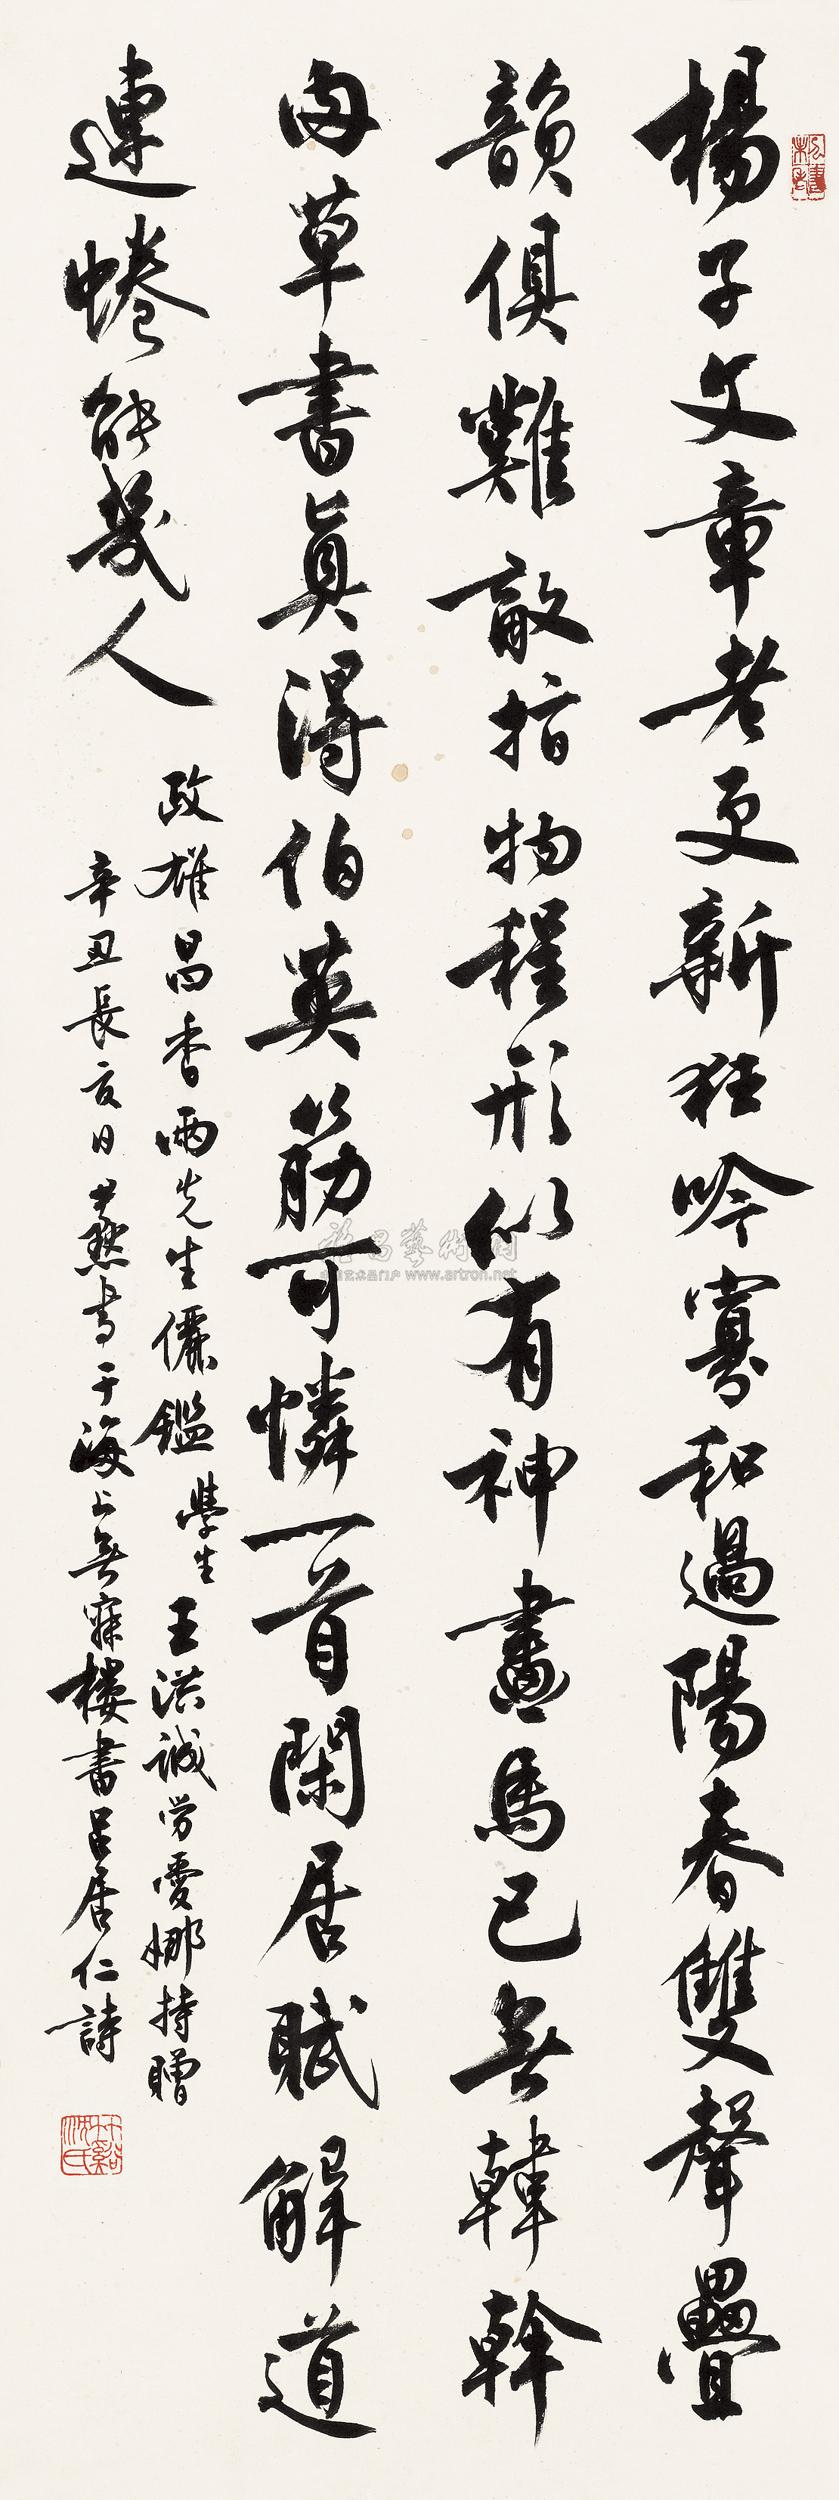 楊子文章老更新狂吟寡和過陽春雙聲疊
韻俱難敵指物程形似有神畫馬已無韓幹
肉草書真得伯英筋可憐一首閑居賦解道
連蜷能幾人
政雄昌香兩先生儷鑑學生王洪誠勞愛娜持贈
辛丑長夏日燕書于海上無寐樓書呂居仁詩
www.artron.net